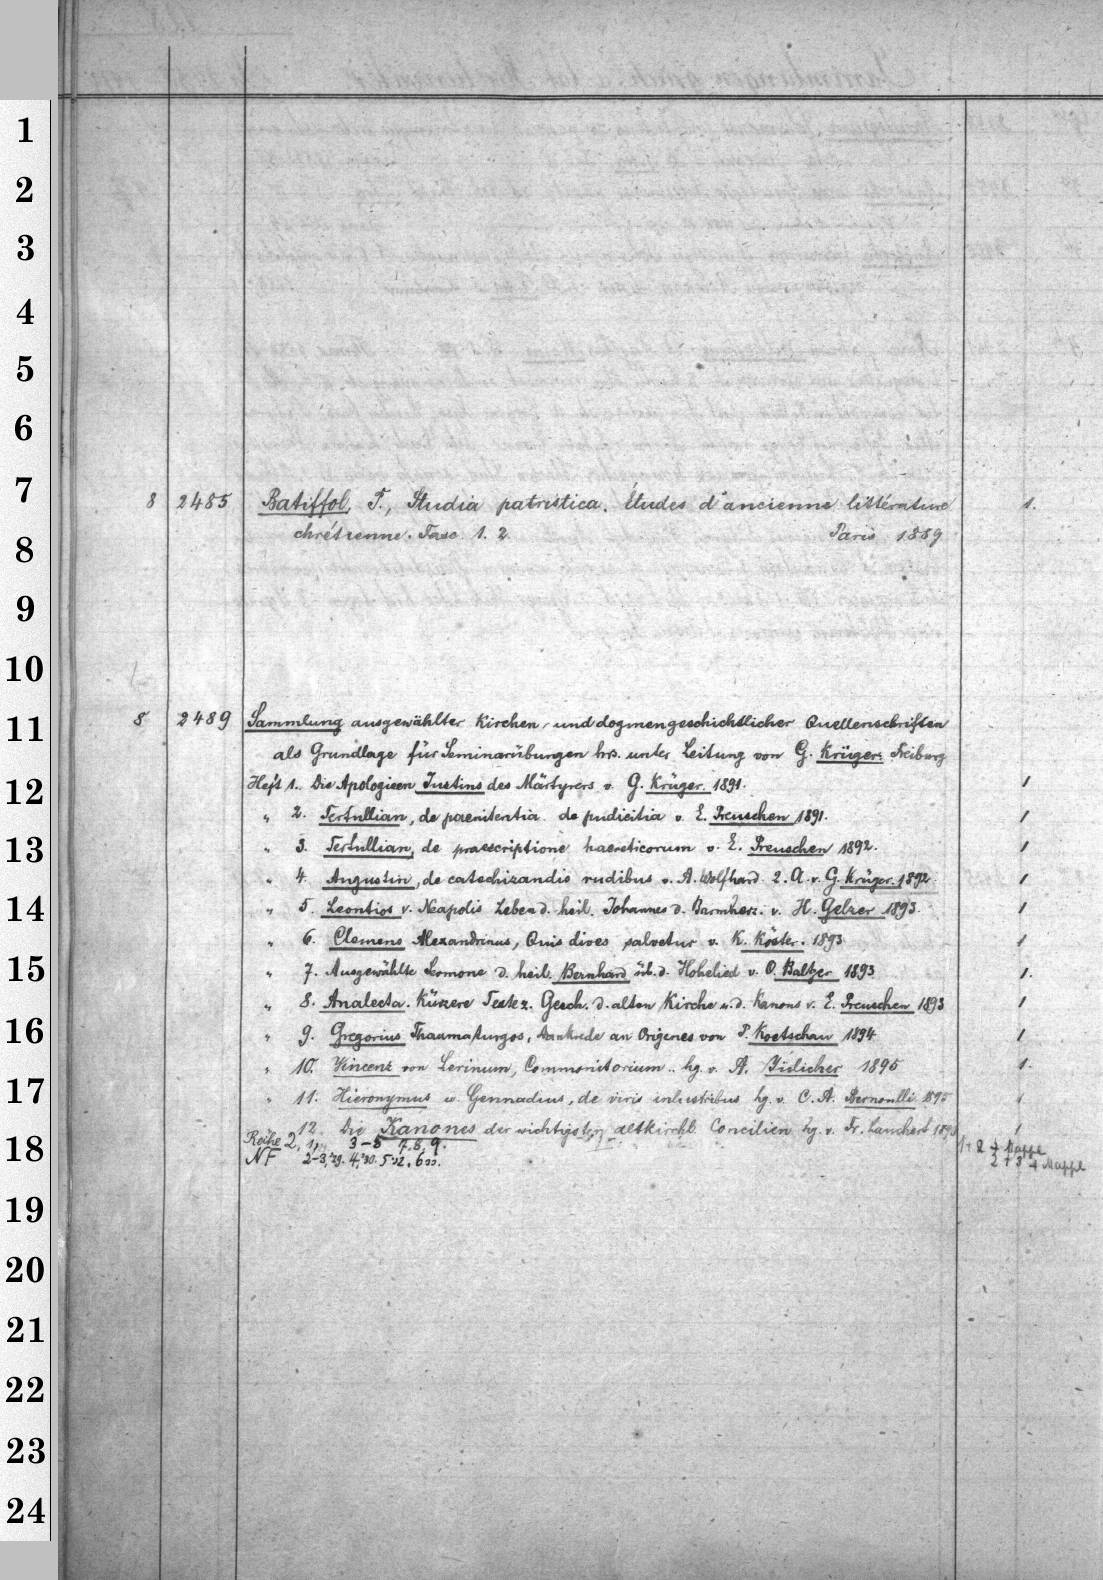 8 2485 Batiffol, P., Studia patristica. Études d'ancienne littérature 1.
chrétienne. Fasc. 1. 2 Paris 1889
8 2489 Sammlung ausgewählter Kirchen- und dogmengeschichtlicher Quellenschriften
als Grundlage für Seminarübungen hrs. unter Leitung von G. Krüger. Freiburg
Heft 1. Die Apologieen Justins des Märtyrers v. G. Krüger. 1891. 1
" 2. Tertullian, de paenitentia. de pudicitia v. E. Preuschen 1891. 1
" 3. Tertullian, de praescriptione haereticorum v. E. Preuschen 1892. 1
" 4. Augustin, de catechizandis rudibus v. A. Wolfhard. 2. A. v. G. Krüger. 1892. 1
" 5. Leontios v. Neapolis Leben d. heil. Johannes d. Barmherz. v. H. Gelzer 1893. 1
" 6. Clemens Alexandrinus, Quis dives salvetur v. K. Köster. 1893 1
" 7. Ausgewählte Sermone d. heil. Bernhard üb. d. Hohelied v. O. Baltzer 1893 1.
" 8. Analecta. Kürzere Texte z. Gesch. d. alten Kirche u. d. Kanons v. E. Preuschen 1893 1
" 9. Gregorius Thaumaturgos, Dankrede an Origenes von P. Koetschau 1894 1
" 10. Vincenz von Lerinum, Commonitorium .. hg. v. A. Jülicher 1895 1.
" 11. Hieronymus u. Gennadius, de viris inlustribus hg. v. C. A. Bernoulli 1895 1
12. Die Kanones der wichtigsten altkirchl. Concilien hg. v. Fr. Lauchert 1896 1
Reihe 2, 1, 3-5 7. 8, 9. 1+2 + Mappe
NF 2-3,'29. 4,'30. 5'32. 6'33. 2+3 + Mappe
1
2
3
4
5
6
7
8
9
10
11
12
13
14
15
16
17
18
19
20
21
22
23
24